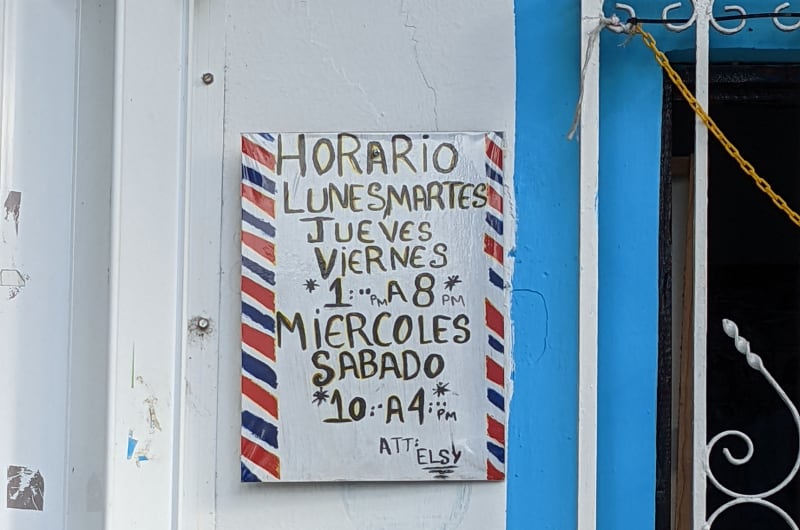 HORARIO
LUNES,MARTES
JUEVES
VIERNES
*1:00 PM A 8 PM*
MIERCOLES
SABADO
*10:00 A 4:00 PM*
ATT: ELSY